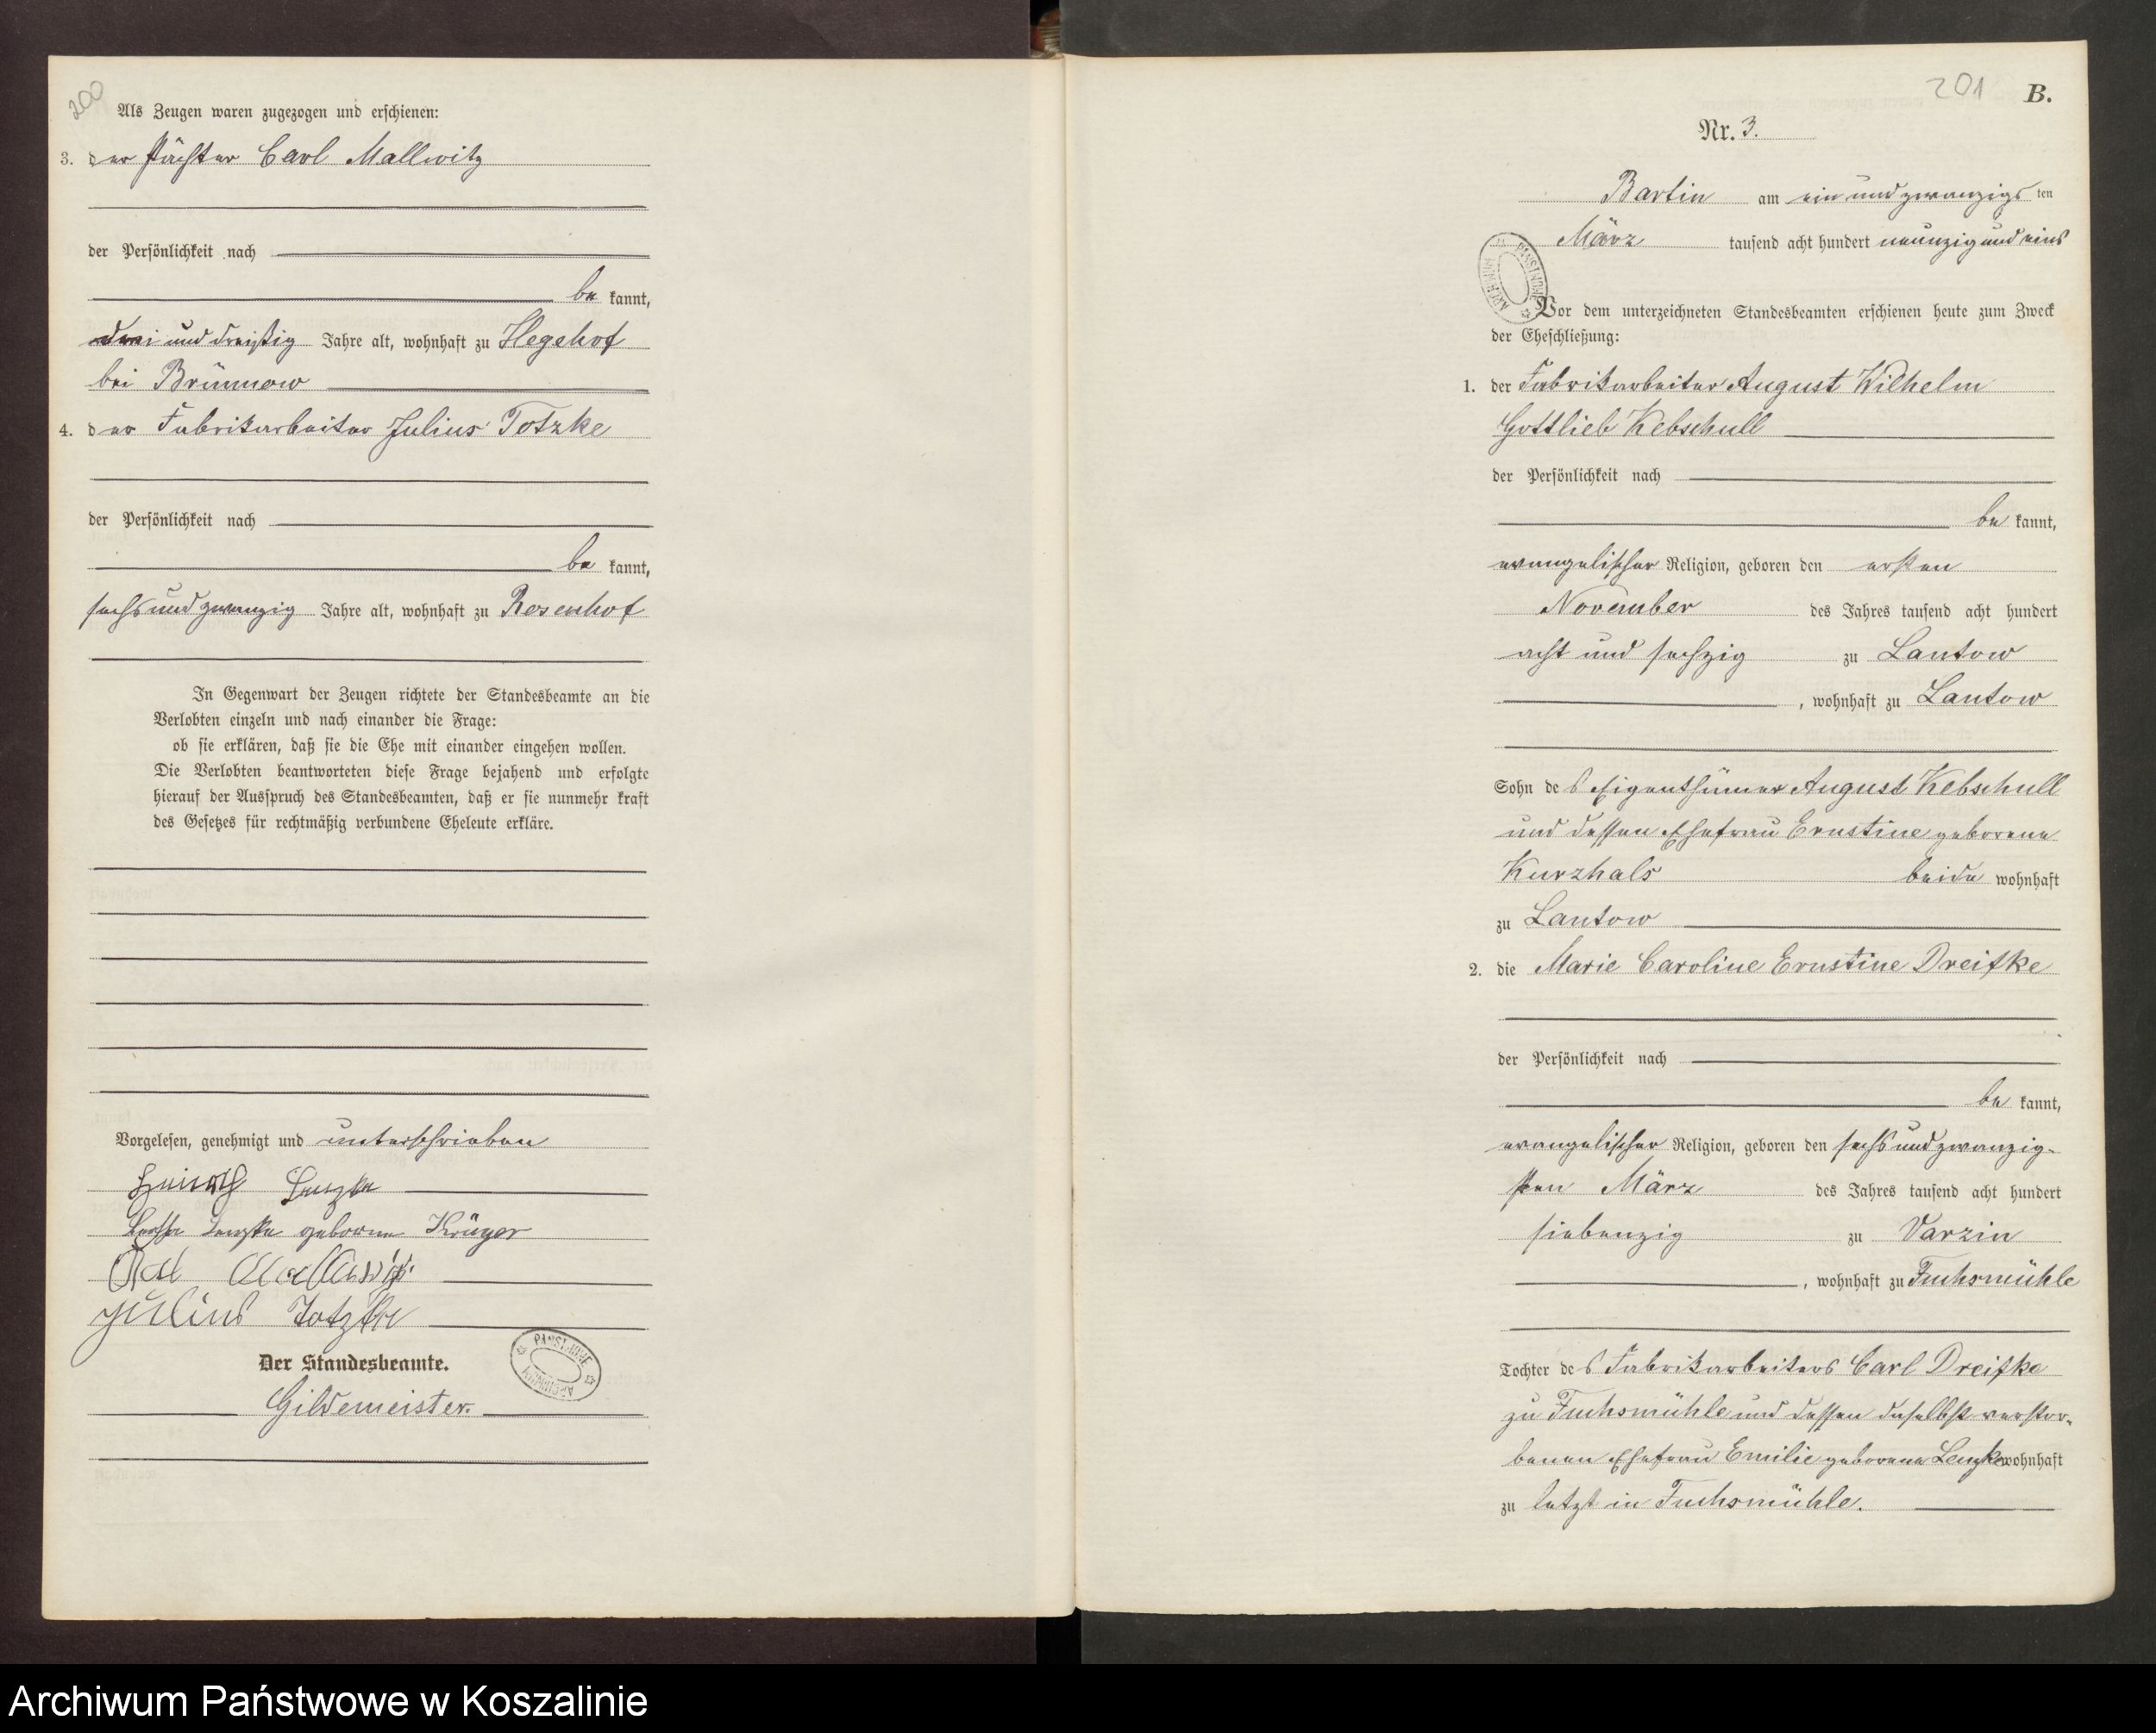 200
Als Zeugen waren zugezogen und erschienen:
3. der Pächter Carl Mallwitz
der Persönlichkeit nach
be kannt,
drei und dreißig Jahre alt, wohnhaft zu Hegehof
bei Brünnow
4. der Fabrikarbeiter Julius Totzke
der Persönlichkeit nach
be kannt,
sechs und zwanzig Jahre alt, wohnhaft zu Rosenhof
In Gegenwart der Zeugen richtete der Standesbeamte an die
Verlobten einzeln und nach einander die Frage:
ob sie erklären, daß sie die Ehe mit einander eingehen wollen.
Die Verlobten beantworteten diese Frage bejahend und erfolgte
hierauf der Ausspruch des Standesbeamten, daß er sie nunmehr kraft
des Gesetzes für rechtmäßig verbundene Eheleute erkläre.
Vorgelesen, genehmigt und unterschrieben
Heinrich Lenzke
Lenzke geborene Krüger
Carl Mallwitz
Julius Totzke
Der Standesbeamte.
Gildemeister.
201 B.
Nr. 3.
Bartin am ein und zwanzigs ten
März tausend acht hundert neunzig und eins
Vor dem unterzeichneten Standesbeamten erschienen heute zum Zweck
der Eheschließung:
1. der Fabrikarbeiter August Wilhelm
Gottlieb Kebschull
der Persönlichkeit nach
be kannt,
evangelischer Religion, geboren den ersten
November des Jahres tausend acht hundert
acht und sechzig zu Lantow
, wohnhaft zu Lantow
Sohn des Eigenthümer August Kebschull
und dessen Ehefrau Ernstine geborene
Kurzhals beide wohnhaft
zu Lantow
2. die Marie Caroline Ernstine Dreifke
der Persönlichkeit nach
be kannt,
evangelischer Religion, geboren den sechs und zwanzig-
sten März des Jahres tausend acht hundert
siebenzig zu Varzin
, wohnhaft zu Fuchsmühle
Tochter des Fabrikarbeiters Carl Dreifke
zu Fuchsmühle und dessen daselbst verstor-
benen Ehefrau Emilie geborene Lenzke wohnhaft
zu letzt in Fuchsmühle.
Archiwum Państwowe w Koszalinie